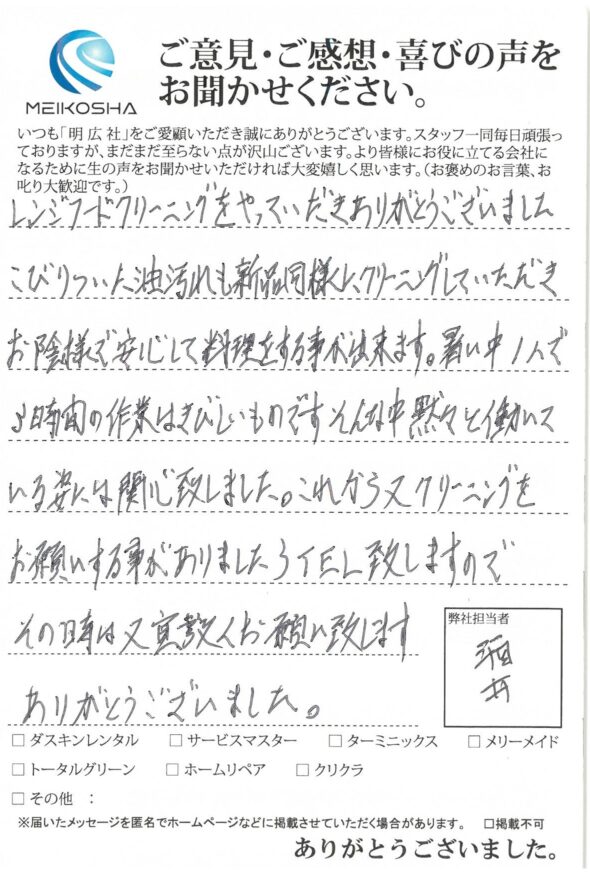 MEIKOSHA
ご意見・ご感想・喜びの声を
お聞かせください。
いつも「明広社」をご愛顧いただき誠にありがとうございます。スタッフ一同毎日頑張っ
ておりますが、まだまだ至らない点が沢山ございます。より皆様にお役に立てる会社に
なるために生の声をお聞かせいただければ大変嬉しく思います。（お褒めのお言葉、お
叱り大歓迎です。）
レンジフードクリーニングをやっていだきありがとうございました
こびりついた油汚れも新品同様にクリーニングしていただき
お陰様で安心して料理をする事が出来ます。暑い中1人で
時間の作業はきびしいものですそんな中黙々と働いて
いる姿には関心致しました。これから又クリーニングを
お願いする事がありましたらTEL致しますので
その時は又宜敷くお願い致します
ありがとうございました。
弊社担当者
酒井
□ ダスキンレンタル □ サービスマスター □ ターミニックス □ メリーメイド
□ トータルグリーン □ ホームリペア □ クリクラ
□ その他 ：
※届いたメッセージを匿名でホームページなどに掲載させていただく場合があります。 □掲載不可
ありがとうございました。